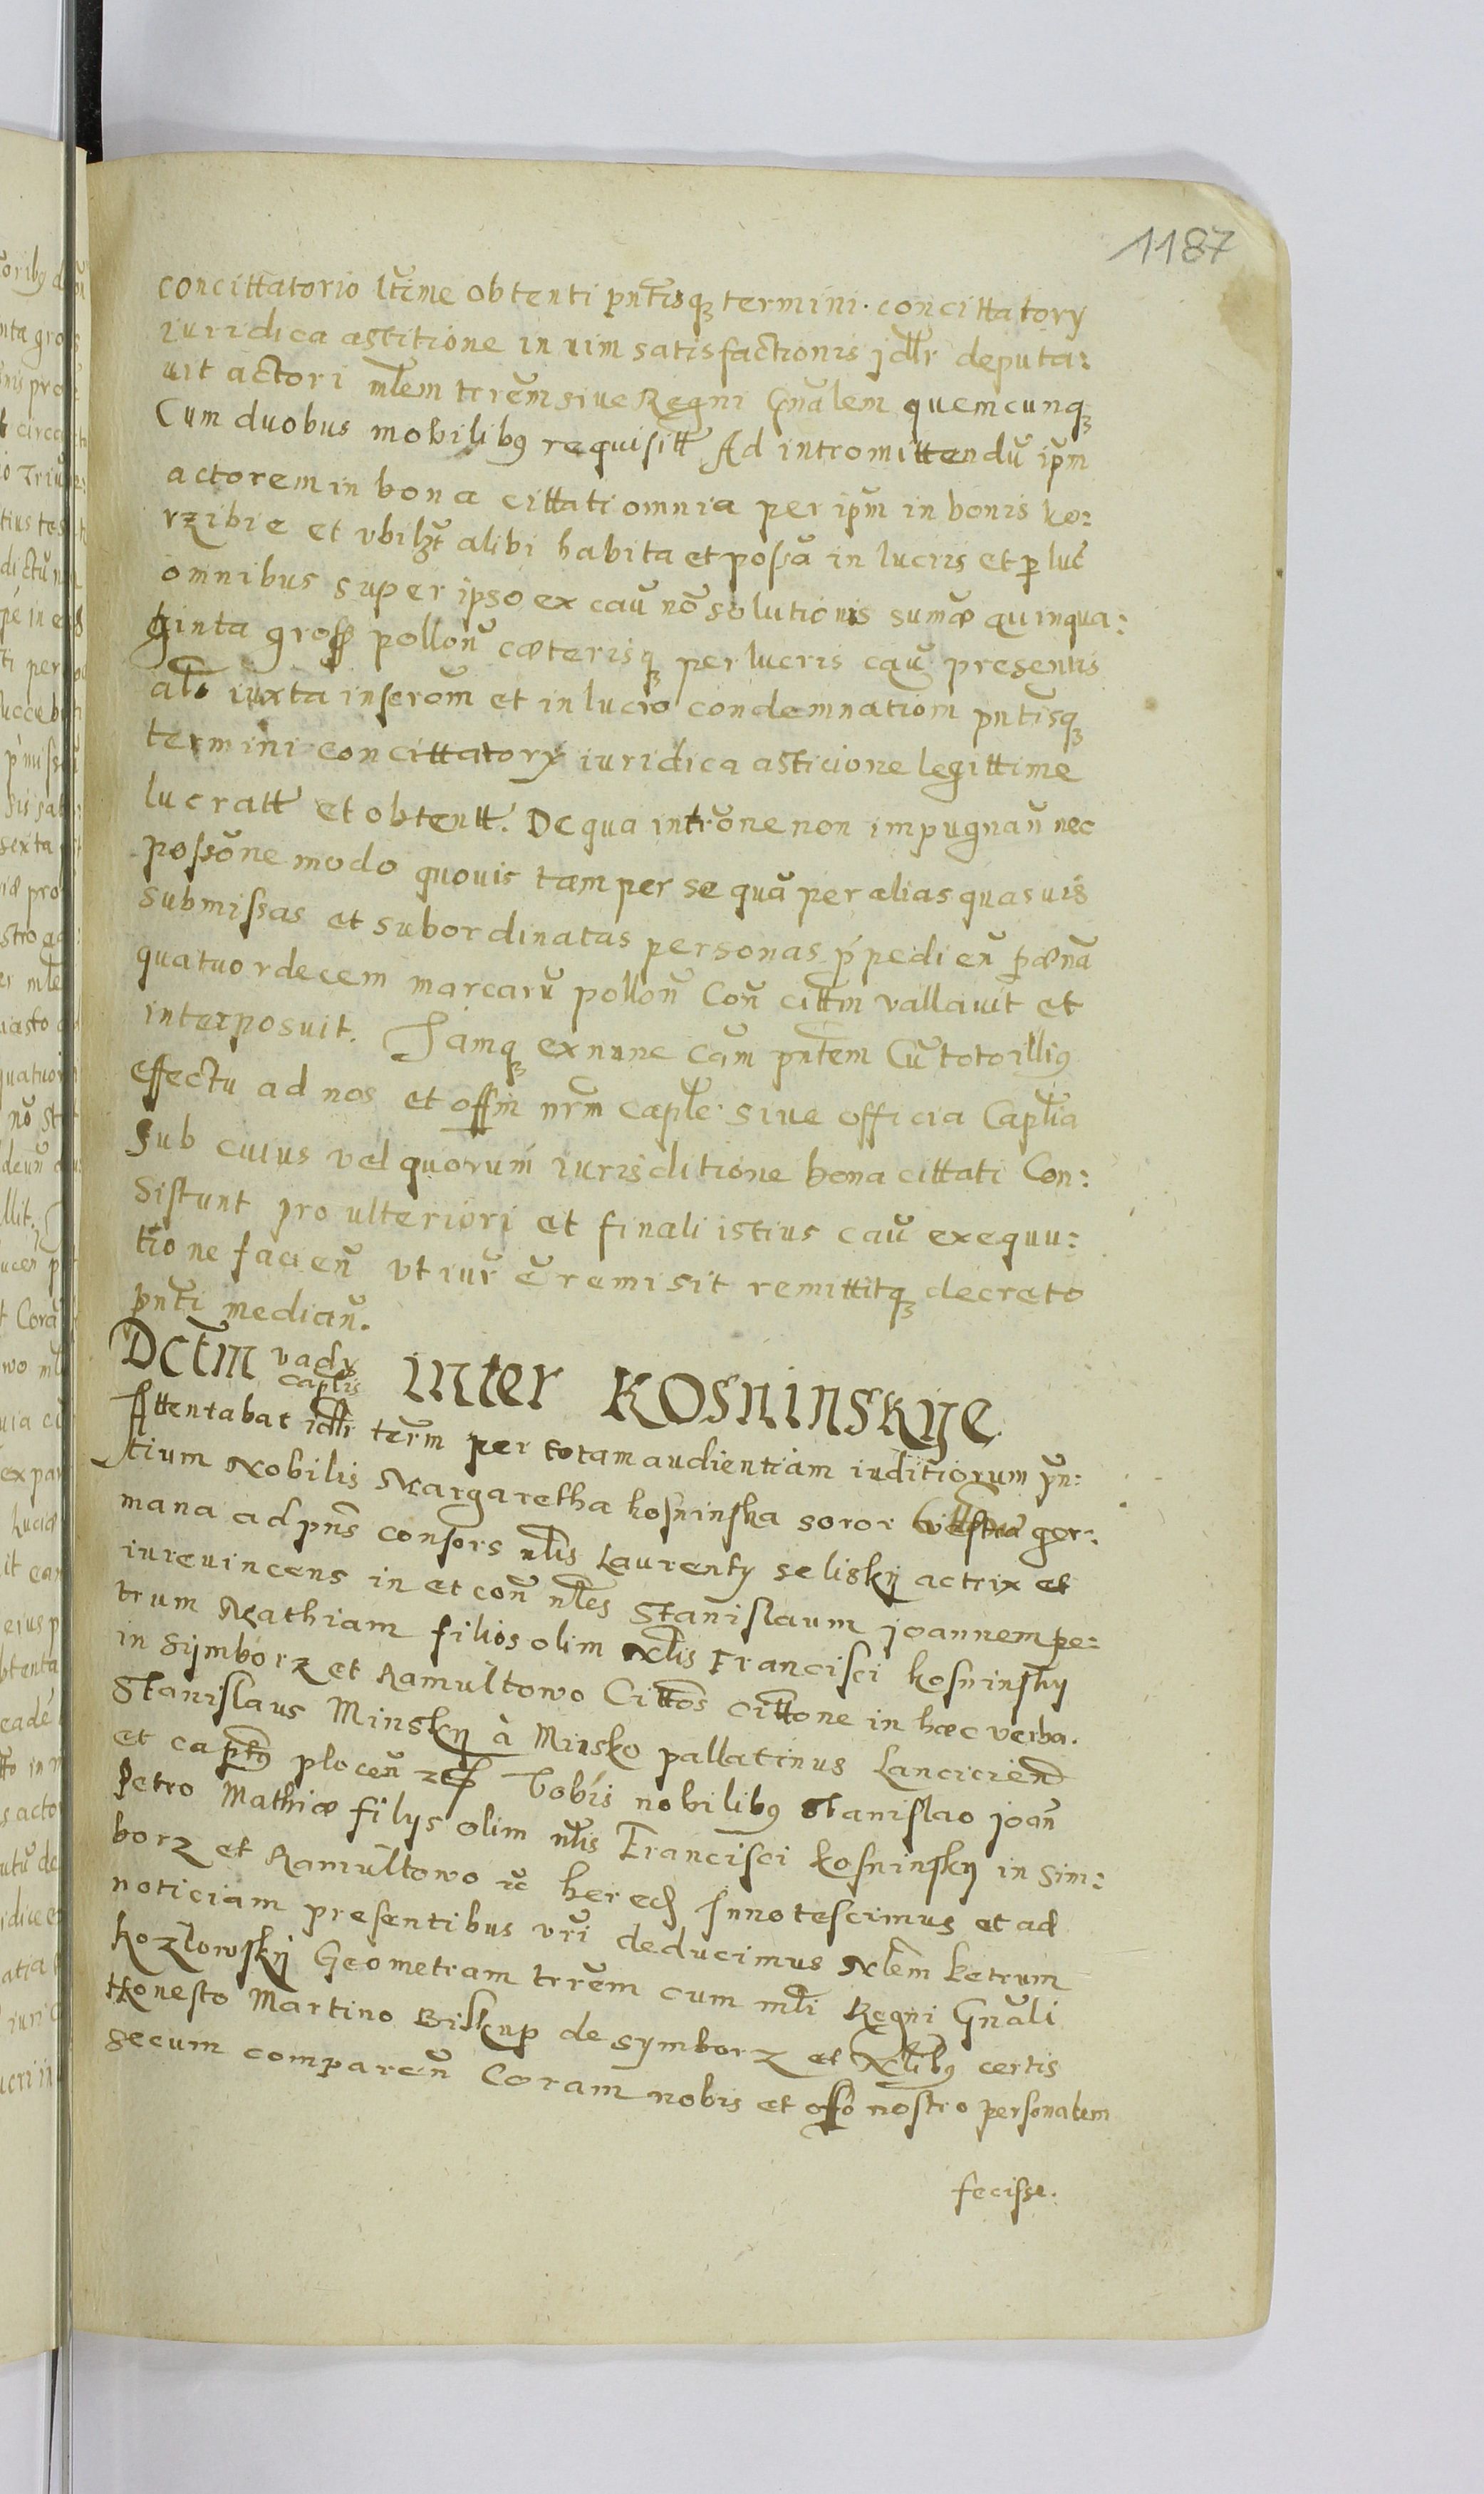 1187
concittatorio ltime obtenti pntisq termini concittatory
iuridica astitione in uim satisfactionis jdlr deputa:
uit actori mlem trem siue Regni Gnalem quemcunq
Cum duobus mobilibus requisitt Ad intromittendu ipm
actorem in bona cittati omnia per ipm in bonis ko:
rzibie et vbilzt alibi habita et possa in lucris et p luc
omnibus super ipso ex cau no solutionis sumæ quinqua:
ginta gross pollonu cæterisq per lucris cau presentis
als iuxta inserom et in lucro condemnationi pntisq
termini concittatory iuridica asticione legittime
lucratt et obtentt. De qua introne non impugnan nec
possone modo quouis tam per se qua per alias quasuis
submissas et subordinatas personas ppedien pæna
quatuordecem marcaru pollon Con cittm vallauit et
interposuit. Jamq ex nunc cam pntem Cu toto illius
effectu ad nos et offm nrm caple siue officia Captia
sub cuius vel quorum iurisditione bona cittati Con:
sistunt pro ulteriori et finali istius cau exequu:
tione facien vt iur e remisit remittitq decreto
pnti median.
Dctm vady captis inter Kosninskye
Attentabat idlr term per totam audientiam iuditiorum pn:
tium Nobilis Margaretha kosninska soror germana ger:
mana ad pns consors nlis Laurenty seliskij actrix et
iureuincens in et con nles Stanislaum joannem pe:
trum Mathiam filios olim Nlis Francisci kosninsky
in Sijmborz et Ramultowo Cittos cittone in hæc verba.
Stanislaus Minskij à Minsko pallatinus Lanciciens
et captus plocen zc Vobis nobilibus Stanislao joan
Petro Mathiæ filys olim nlis Francisci kosninskij in Sim:
borz et Ramultowo zc hered Innotescimus et ad
noticiam presentibus vri deducimus Nlem Petrum
Kozlowskij Geometram trrem cum mli Regni Gnali
Honesto Martino Biskup de symborz et Nlibus certis
secum comparen Coram nobis et offo nostro personatem
fecisse.